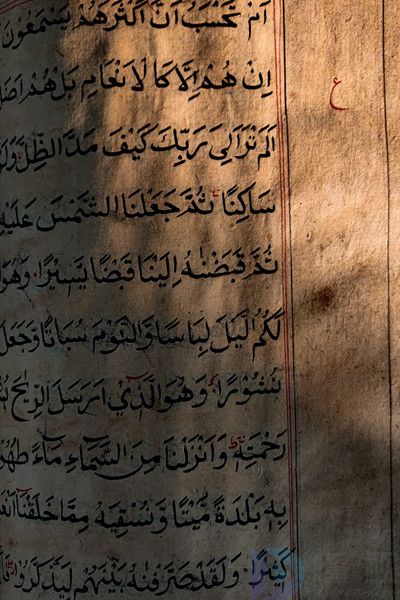 اَمْ تَحْسَبُ اَنَّ اَكْثَرَهُمْ يَسْمَعُوْنَ
اِنْ هُمْ اِلَّا كَالْاَنْعَامِ بَلْ هُمْ اَضَل
ع
اَلَمْ تَرَ اِلٰى رَبِّكَ كَيْفَ مَدَّ الظِّلَّ وَلَو
سَاكِنًا ثُمَّ جَعَلْنَا الشَّمْسَ عَلَيْهِ
ثُمَّ قَبَضْنٰهُ اِلَيْنَا قَبْضًا يَسِيْرًا وَهُوَ
لَكُمُ الَّيْلَ لِبَاسًا وَّالنَّوْمَ سُبَاتًا وَّجَعَلَ
نُشُوْرًا وَهُوَ الَّذِيْٓ اَرْسَلَ الرِّيٰحَ
رَحْمَتِهٖ وَاَنْزَلْنَا مِنَ السَّمَآءِ مَآءً طَهُوْ
بِهٖ بَلْدَةً مَّيْتًا وَّنُسْقِيَهٗ مِمَّا خَلَقْنَا
كَثِيْرًا وَلَقَدْ صَرَّفْنٰهُ بَيْنَهُمْ لِيَذَّكَّرُوْا